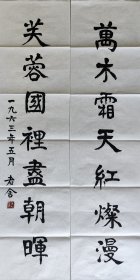 萬木霜天紅燦漫
芙蓉國裡盡朝暉
一九六三年五月 老舍